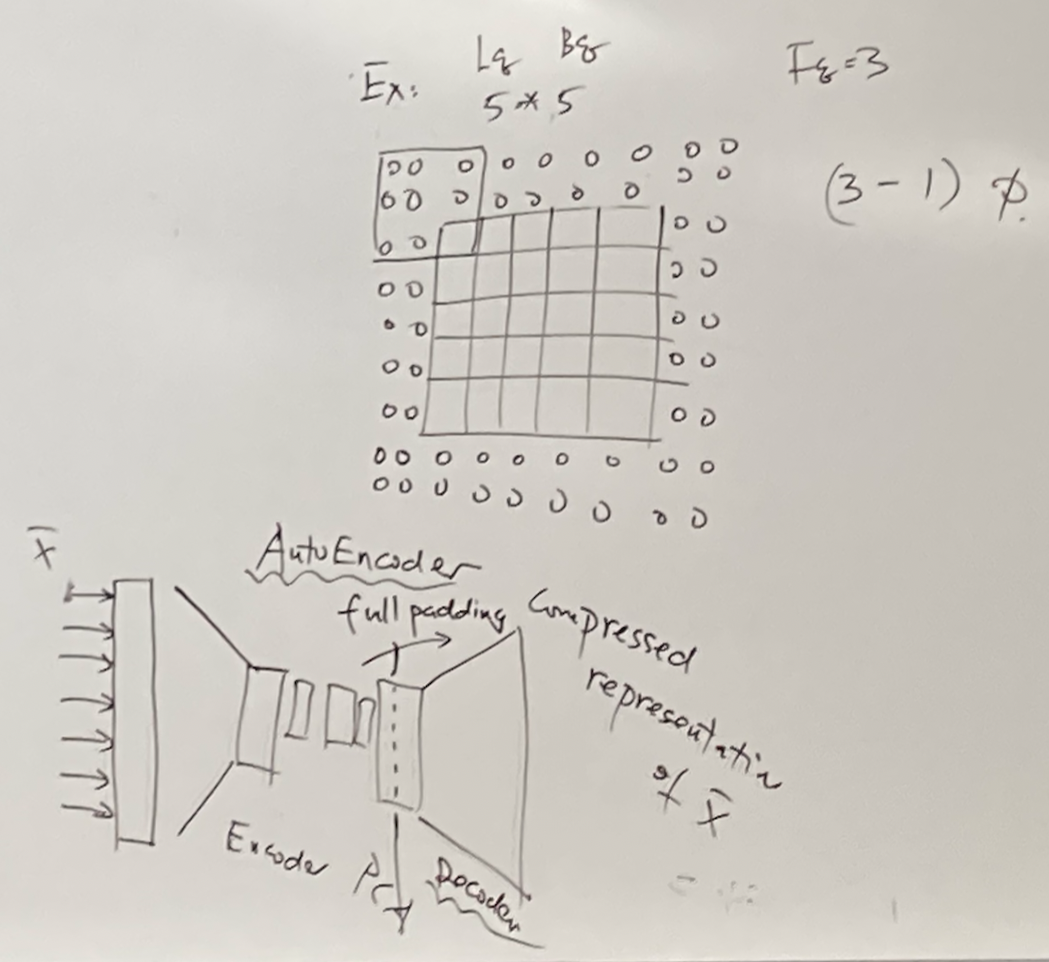 Ex: Lq Bq Fq=3
5*5
(3-1) φ.
00 0 0 0 0 0 0 0
00 0 0 0 0 0 0 0
0 0 0 0
0 0 0 0
0 0 0 0
0 0 0 0
0 0 0 0
00 0 0 0 0 0 0 0
00 0 0 0 0 0 0 0
x̄
AutoEncoder
full padding
Compressed
representation
of x̄
Encoder
Decoder